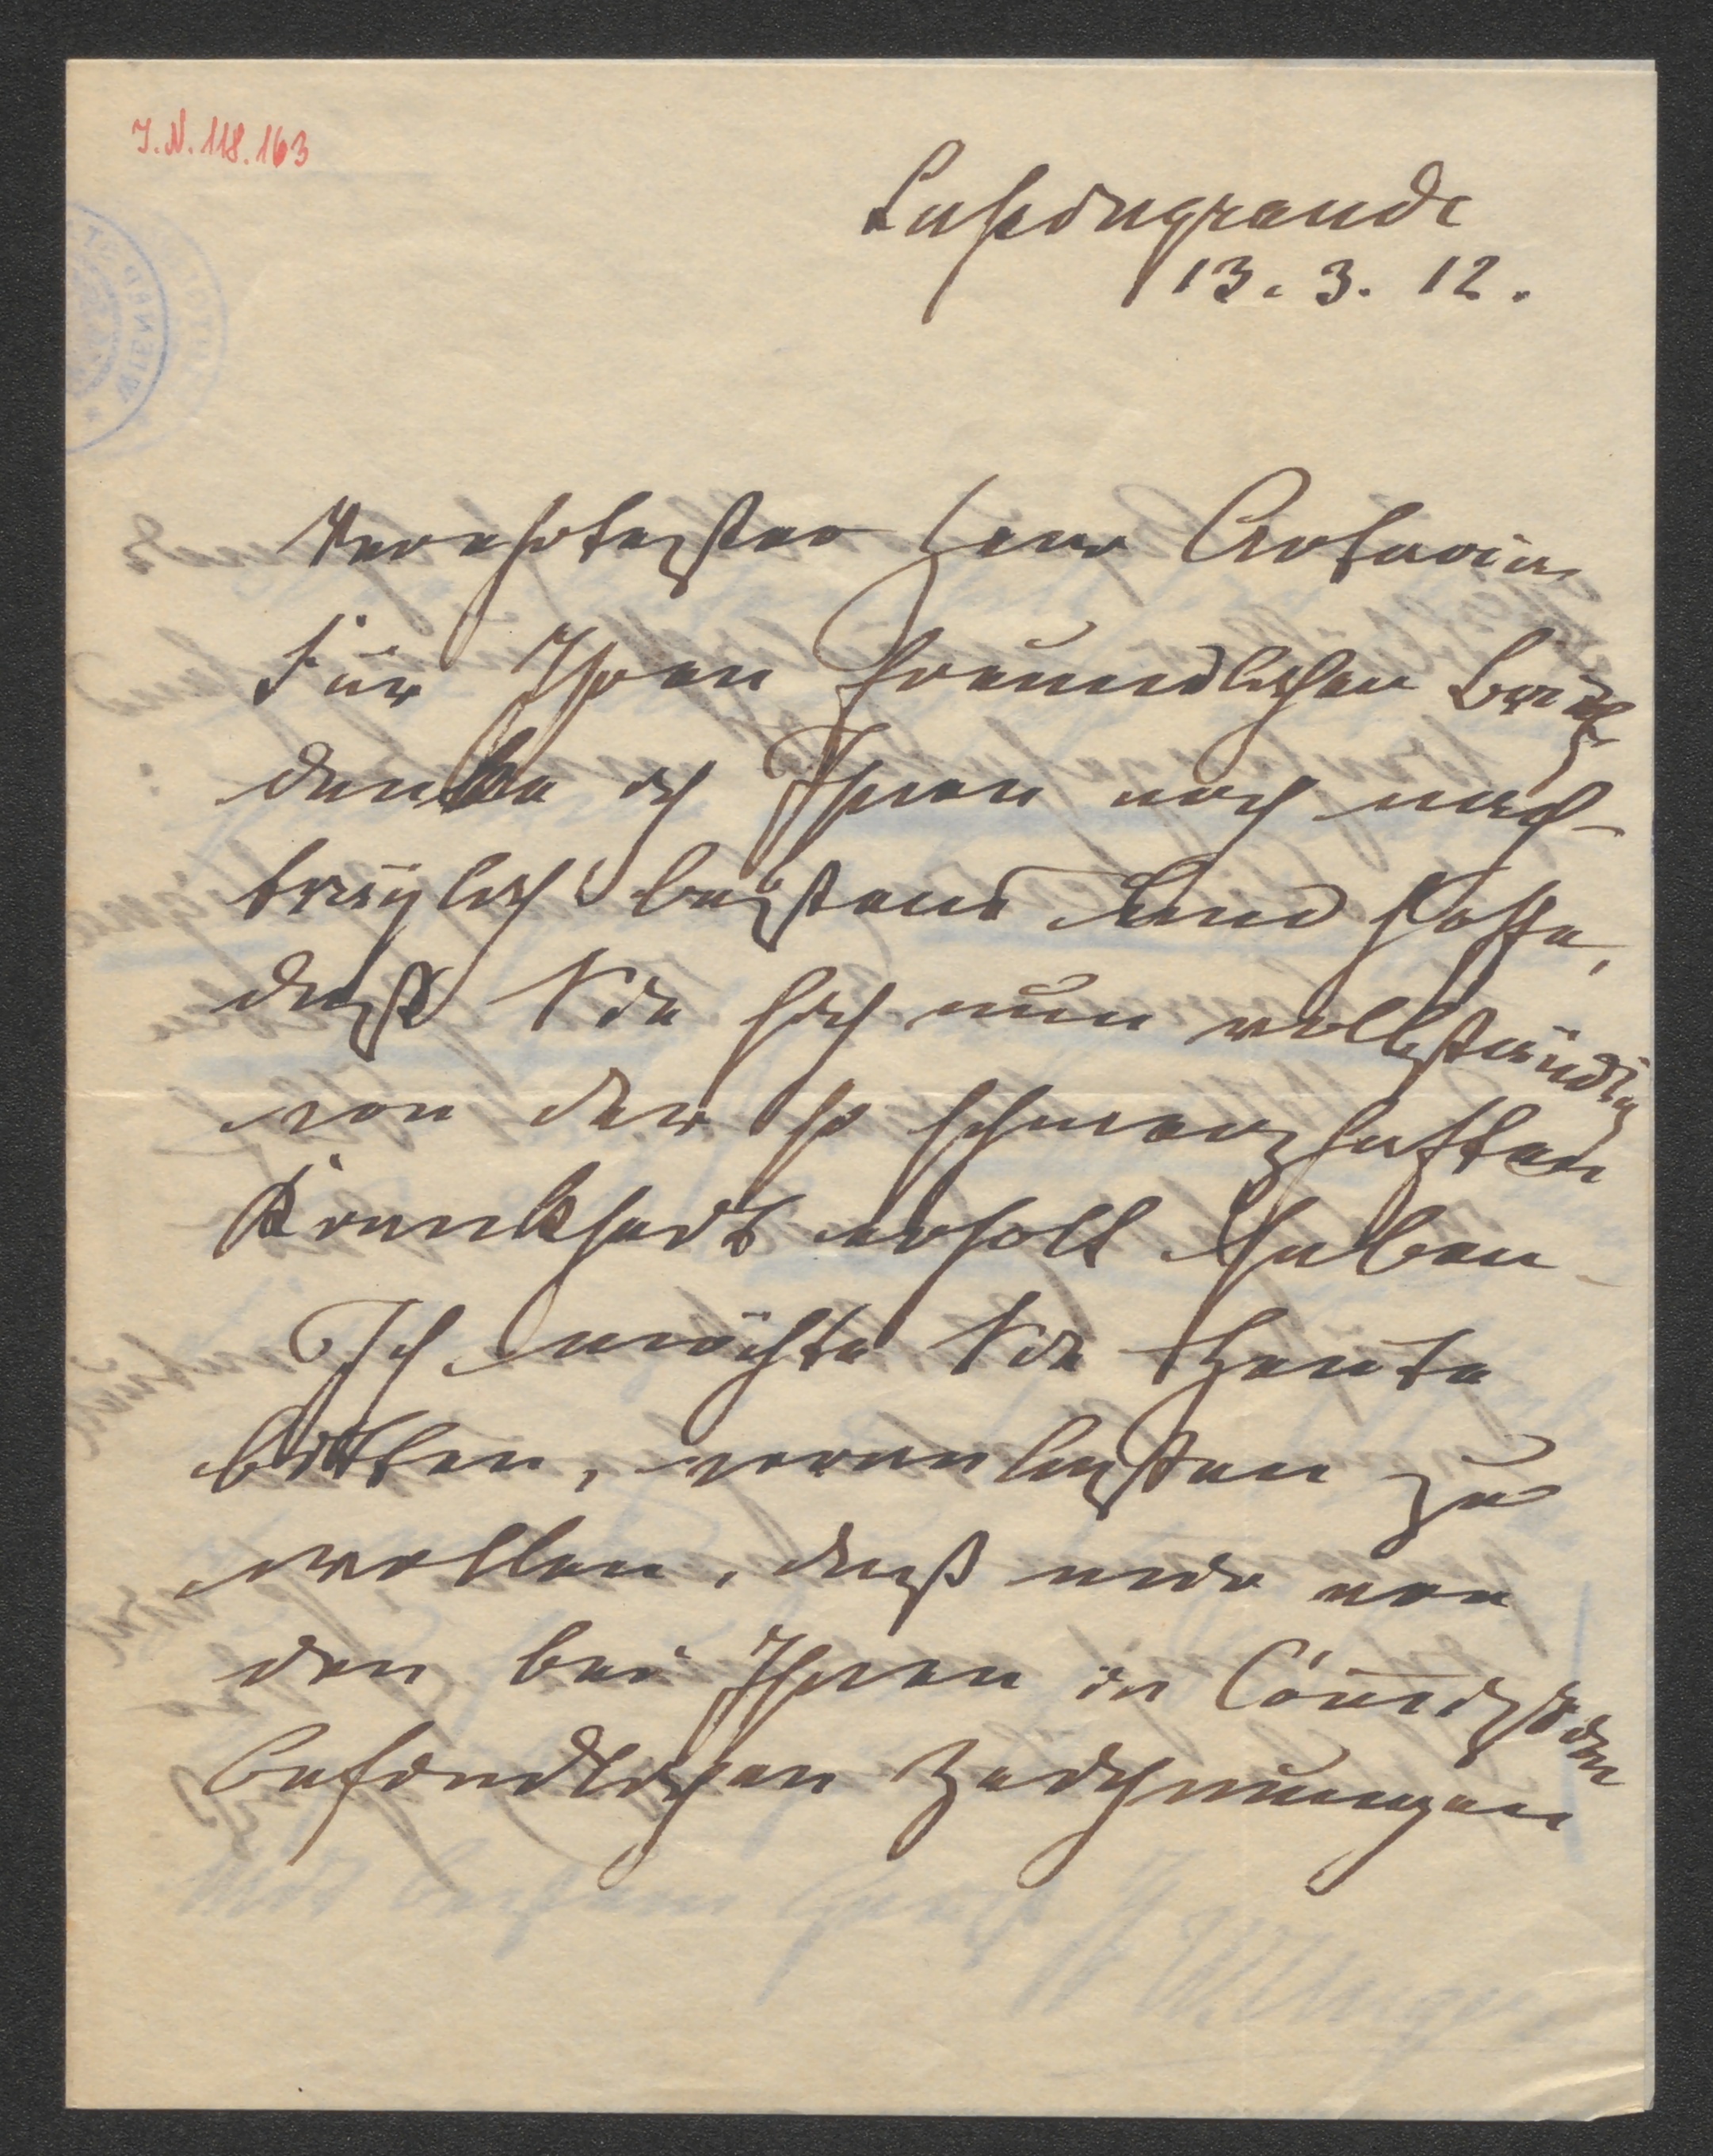 J.N. 118.163
Lussingrande
13. 3. 12.
Verehrtester Herr Artaria
Für Ihren freundlichen Brief
danke ich Ihnen noch nach-
träglich bestens und hoffe,
daß Sie sich nun vollständig
von der so schmerzhaften
Krankheit erholt haben.
Ich möchte Sie heute
bitten, veranlassen zu
wollen, daß mir von
den bei Ihnen in Comission
befindlichen Zeichnungen